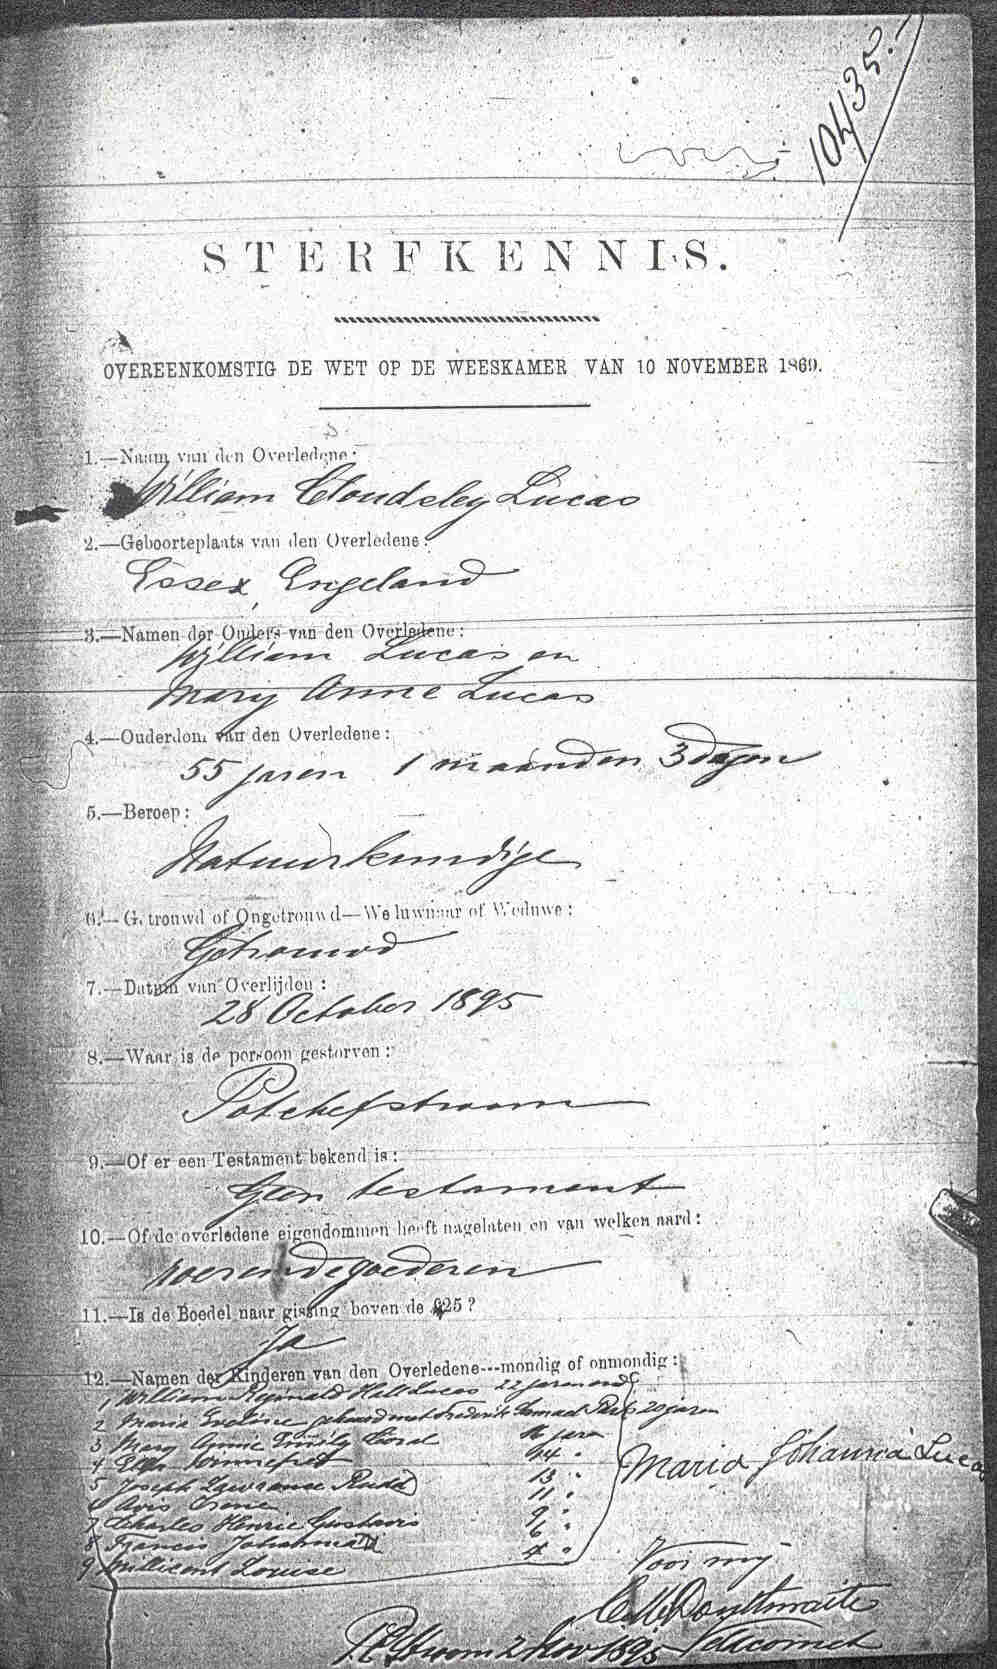 10435.-
STERFKENNIS.
OVEREENKOMSTIG DE WET OP DE WEESKAMER VAN 10 NOVEMBER 1869.
1.—Naam van den Overledene:
William Cloudsley Lucas
2.—Geboorteplaats van den Overledene:
Essex, Engeland
3.—Namen der Ouders van den Overledene:
William Lucas en
Mary Anne Lucas
4.—Ouderdom van den Overledene:
55 jaren 1 maanden 3 dagen
5.—Beroep:
Natuurkundige
6.—Getrouwd of Ongetrouwd—Weduwnaar of Weduwe:
Getrouwd
7.—Datum van Overlijden:
28 October 1895
8.—Waar is de persoon gestorven:
Potchefstroom
9.—Of er een Testament bekend is:
Geen testament
10.—Of de overledene eigendommen heeft nagelaten en van welken aard:
roerende goederen
11.—Is de Boedel naar gissing boven de £25?
Ja
12.—Namen der Kinderen van den Overledene---mondig of onmondig:
1 William Reginald Hall Lucas 22 jaren oud
2 Maria Eveline gehuwd met Frederik 20 jaren
3 Mary Annie Emily Coral 16 jaren
4 Winnefred 14 "
5 Joseph Lawrance 13 "
6 Avis Irene 11 "
7 Charles Henrie Gustavis 9 "
8 Francis Johanna 6 "
9 Millicent Louise 4 "
Maria Johanna Lucas
Voor mij
C. M. Douthwaite
Veldcornet
P. C. Stroom 2 Nov 1895